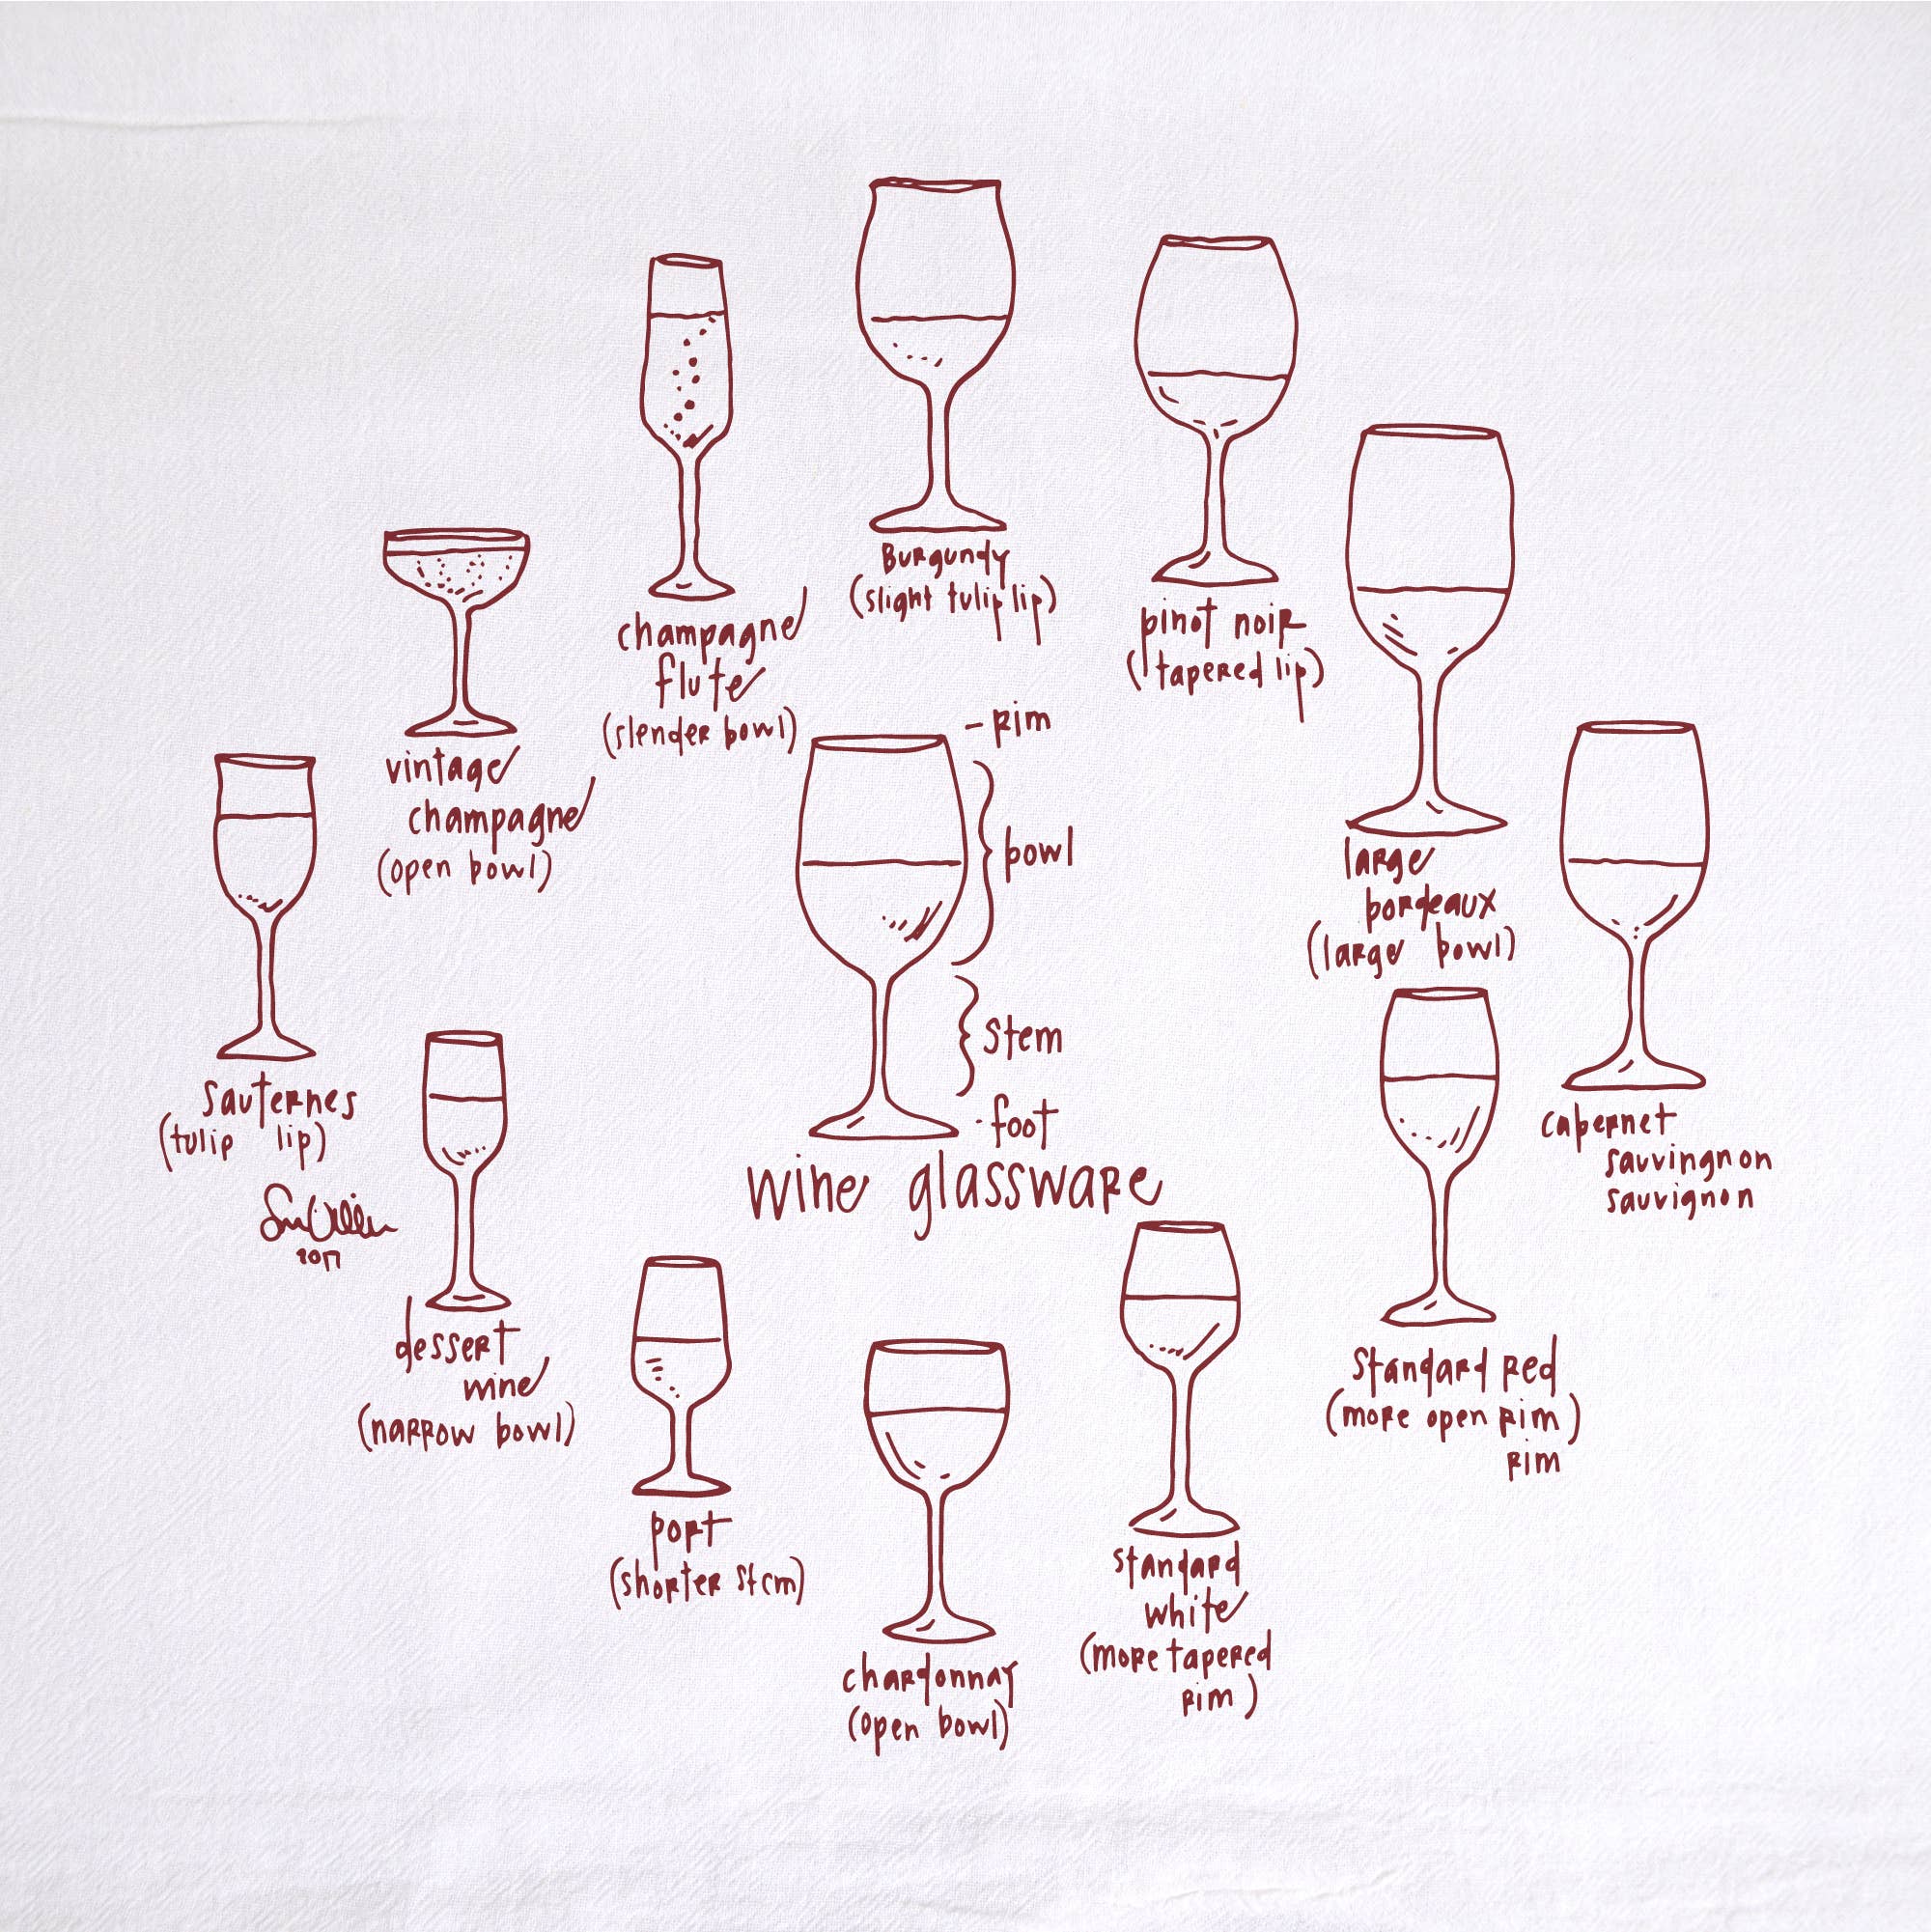 Burgundy
(slight tulip lip)
champagne
flute
(slender bowl)
pinot noir
(tapered lip)
vintage
champagne
(open bowl)
- rim
bowl
stem
- foot
wine glassware
large
bordeaux
(large bowl)
cabernet
sauvingnon
sauvignon
sauternes
(tulip lip)
2017
dessert
wine
(narrow bowl)
standard red
(more open rim)
rim
port
(shorter stem)
standard
white
(more tapered
rim)
chardonnay
(open bowl)